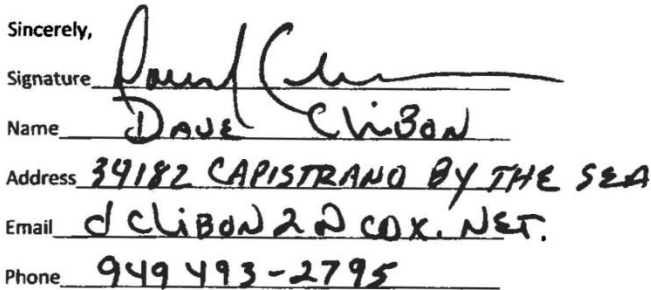 Sincerely,
Signature
Name DAVE CLIBON
Address 34182 CAPISTRANO BY THE SEA
Email dCLIBON2@COX.NET.
Phone 949 493-2795